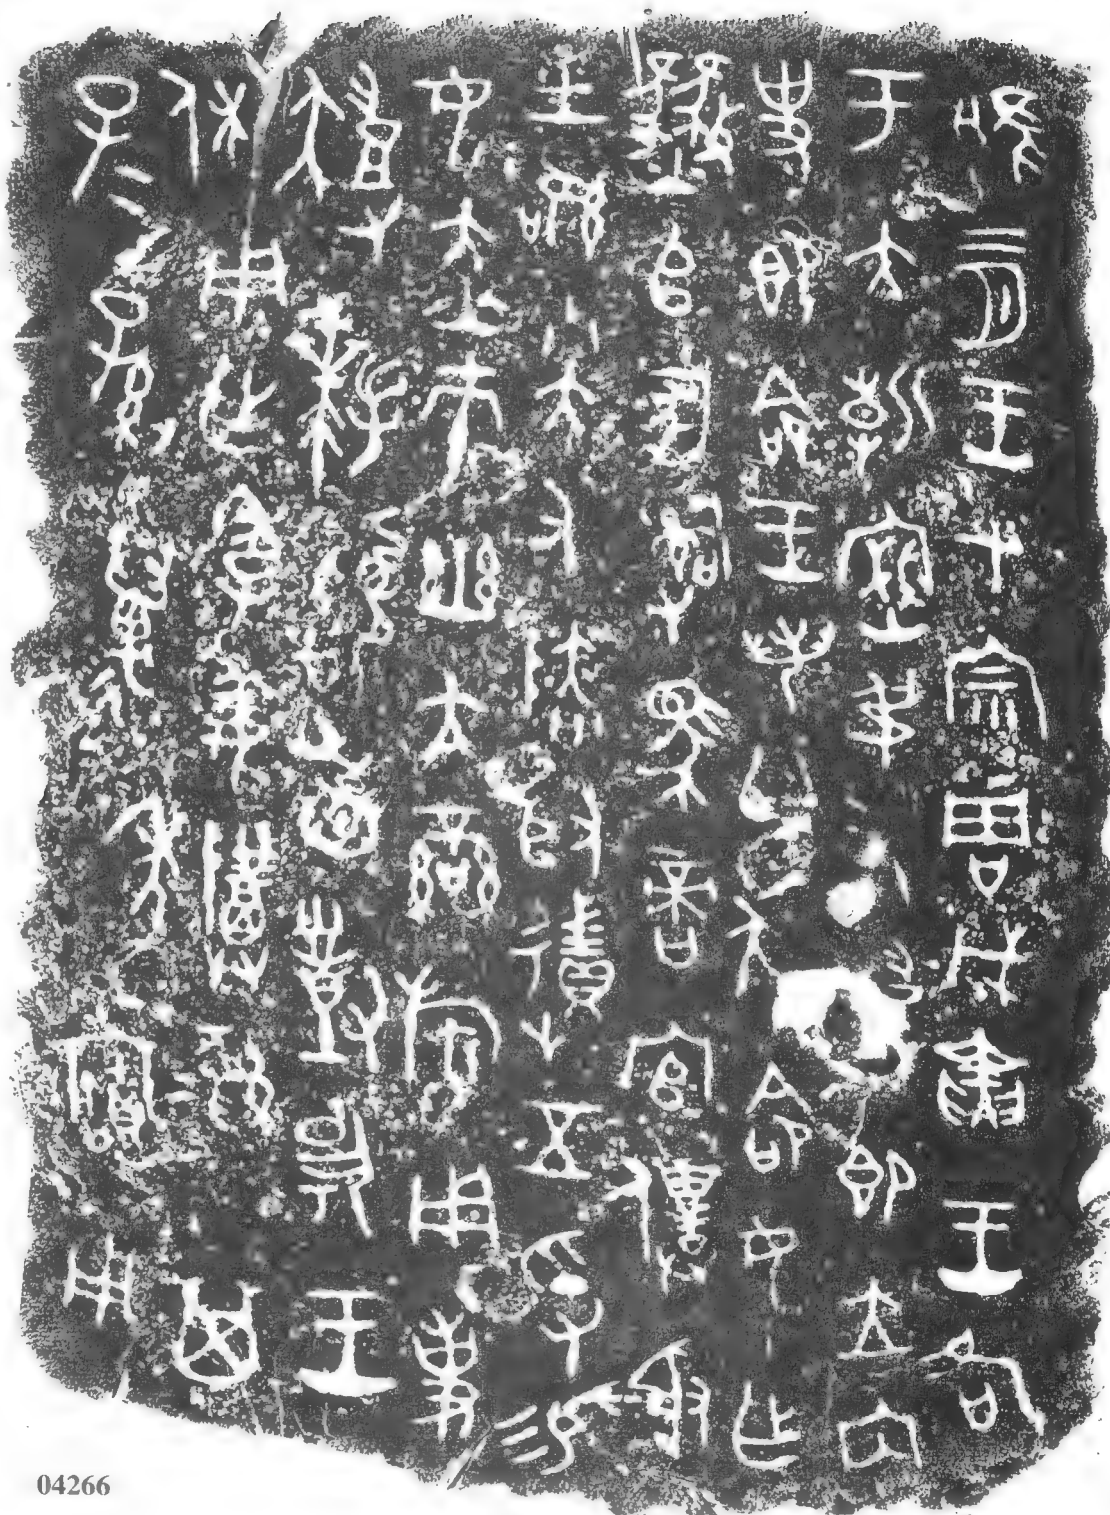 唯三月王才宗周戊寅王各
于大朝密弔右趞即立內
史即命王若曰趞命女乍
𤲞𠂤冢𤔲馬啻官僕射
士訊小大又鄰取徵五寽易
女赤巿幽亢䜌旂用事
趞拜𩒨首對揚王
休用乍季姜尊彝其
子=孫=萬年寶用
04266